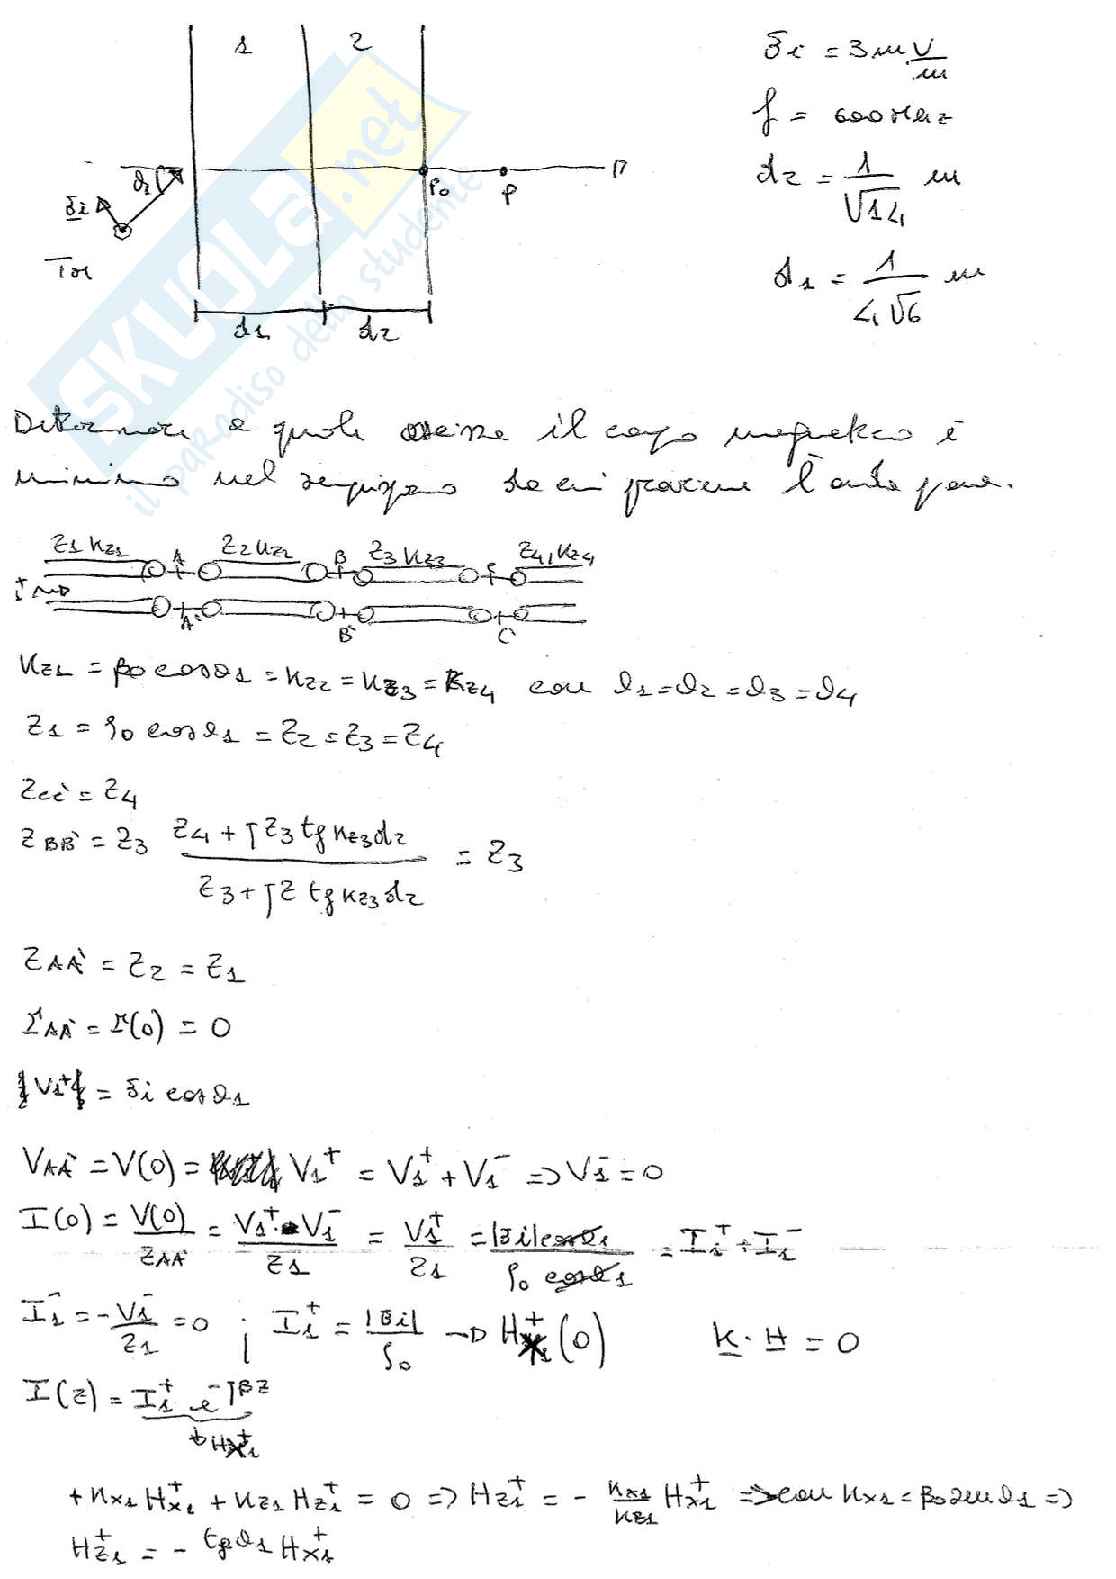 1 2
P₀ P
ϑ₁
Ei
TM
d₁ d₂
Ei = 3 m V/m
f = 600 MHz
d₂ = 1/√14 m
d₁ = 1/(4√6) m
SKUOLA.net
il paradiso dello studente
Determinare a quale il campo magnetico è
minimo nel semispazio da cui proviene l'onda piana.
Z₁ Kz₁ A Z₂ Kz₂ B Z₃ Kz₃ C Z₄, Kz₄
A' B' C'
Kz₁ = β₀ cosϑ₁ = Kz₂ = Kz₃ = Kz₄ con ϑ₁ = ϑ₂ = ϑ₃ = ϑ₄
Z₁ = ζ₀ cosϑ₁ = Z₂ = Z₃ = Z₄
Zcc' = Z₄
ZBB' = Z₃ (Z₄ + jZ₃ tg Kz₃d₂)/(Z₃ + jZ tg Kz₃d₂) = Z₃
ZAA' = Z₂ = Z₁
ΓAA' = Γ(0) = 0
|V₁⁺| = Ei cosϑ₁
VAA' = V(0) = V₁⁺ = V₁⁺ + V₁⁻ => V₁⁻ = 0
I(0) = V(0)/ZAA' = (V₁⁺ - V₁⁻)/Z₁ = V₁⁺/Z₁ = |Ei| cosϑ₁/(ζ₀ cosϑ₁) = I₁⁺ + I₁⁻
I₁⁻ = - V₁⁻/Z₁ = 0 ; I₁⁺ = |Ei|/ζ₀ → H⁺x₁(0) K · H = 0
I(z) = I₁⁺ e^-jβz
Hx₁⁺
+ Kx₁ Hx₁⁺ + Kz₁ Hz₁⁺ = 0 => Hz₁⁺ = - Kx₁/Kz₁ Hx₁⁺ => con Kx₁ = β₀ senϑ₁ =>
Hz₁⁺ = - tgϑ₁ Hx₁⁺